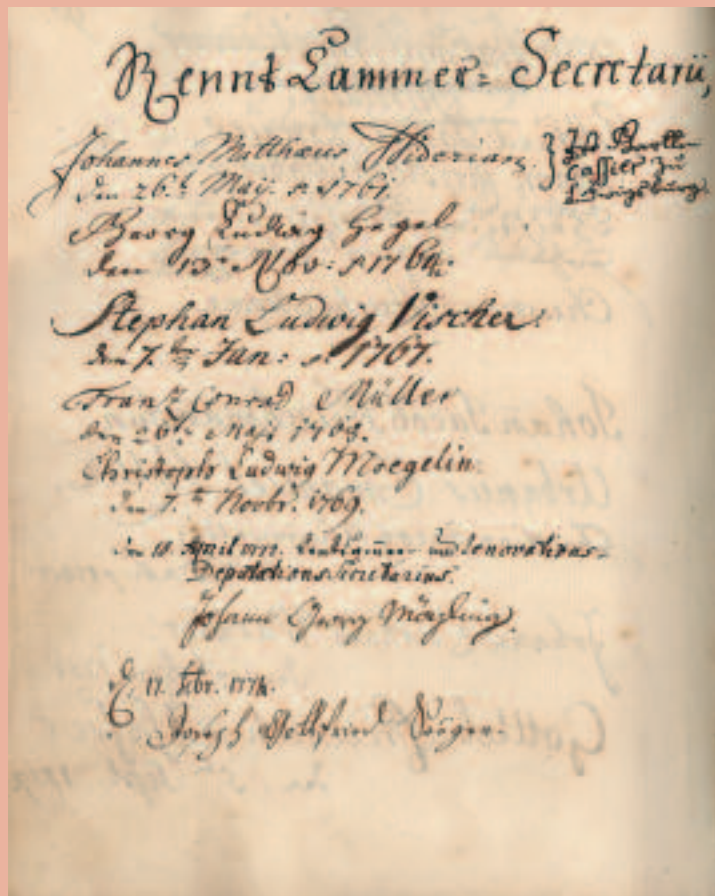 Rennt Cammer- Secretarii,
Johannes Matthaeus
den 26.t Maij. a. 1761.
Cassier zu
Ludwigsburg.
Georg Ludwig Hegel
den 13t Nov: 1766.
Stephan Ludwig Vischer.
den 7.ten Jan: a. 1767.
Franz Conrad Müller
den 26t. Maji 1768.
Christoph Ludwig Moegelin.
den 7.ten Novbr. 1769.
den 18. April Rentkammer und Renovations-
Deputations Secretarius.
Johann Georg Mögling.
d. 17. Febr. 1774.
Joseph Gottfried Seeger.